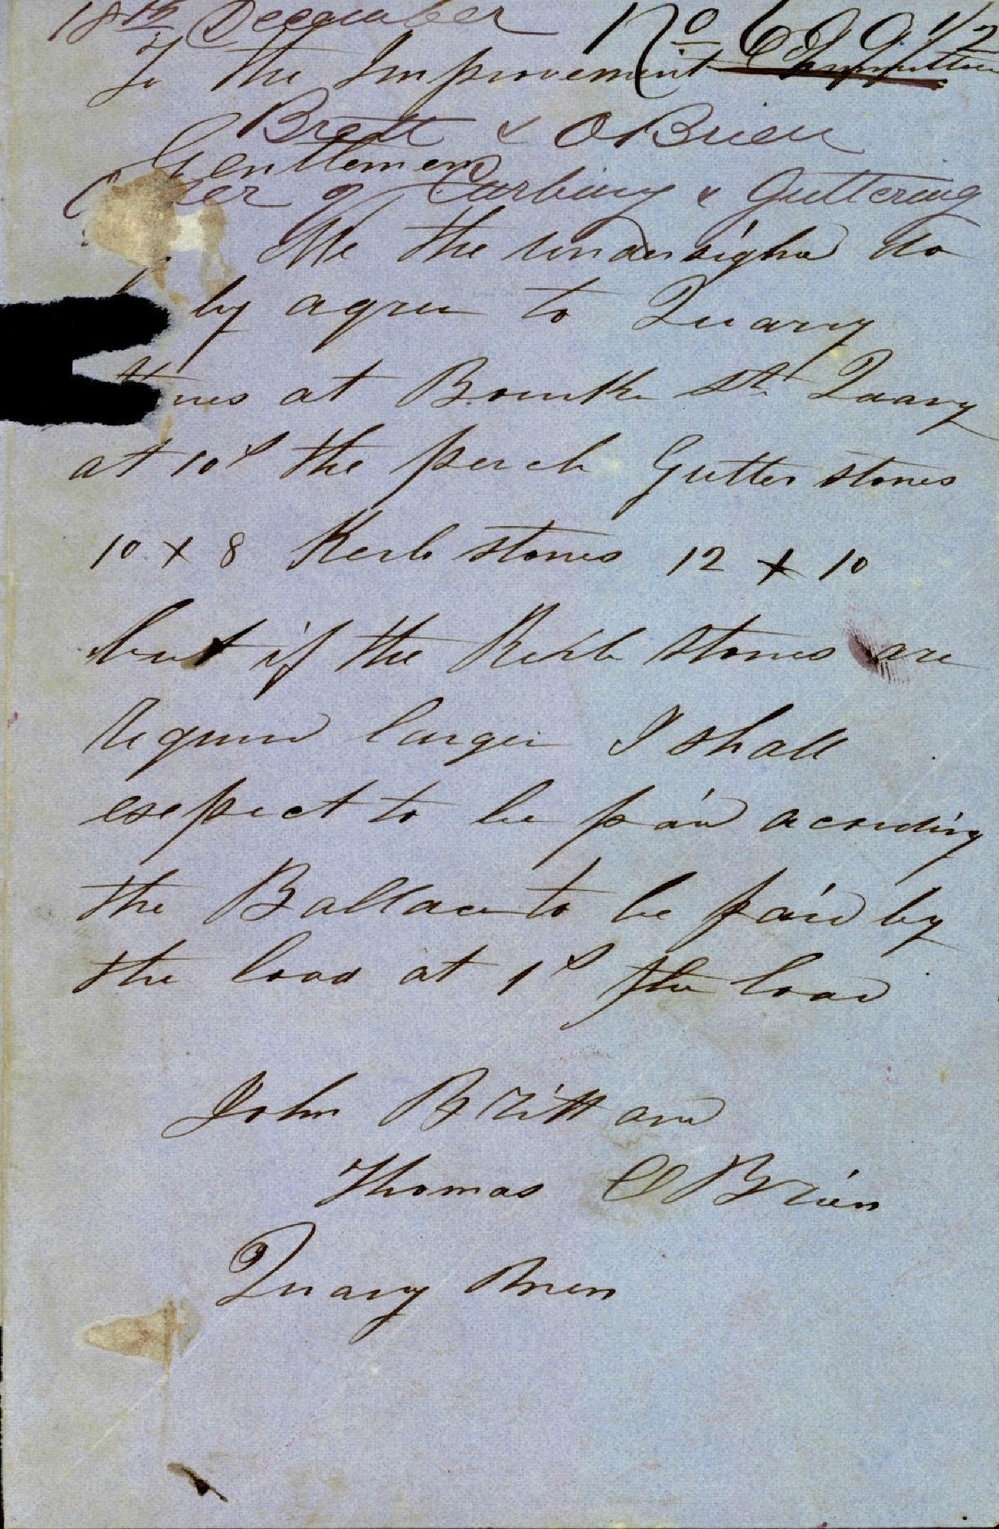 18th December No 689 1/2
To the Improvement Committee
Brett & OBrien
Gentlemen
of Curbing & Guttering
We the undersighd do
by agree to Quarry
at Bourke St Quary
at 10s the perch Gutter stones
10 x 8 Kerb stones 12 x 10
but if the Kerb stones are
Required larger I shall
exspect to be paid acording
the Ballace to be paid by
the load at 1s the load
John Britt and
Thomas OBrien
Quary Men